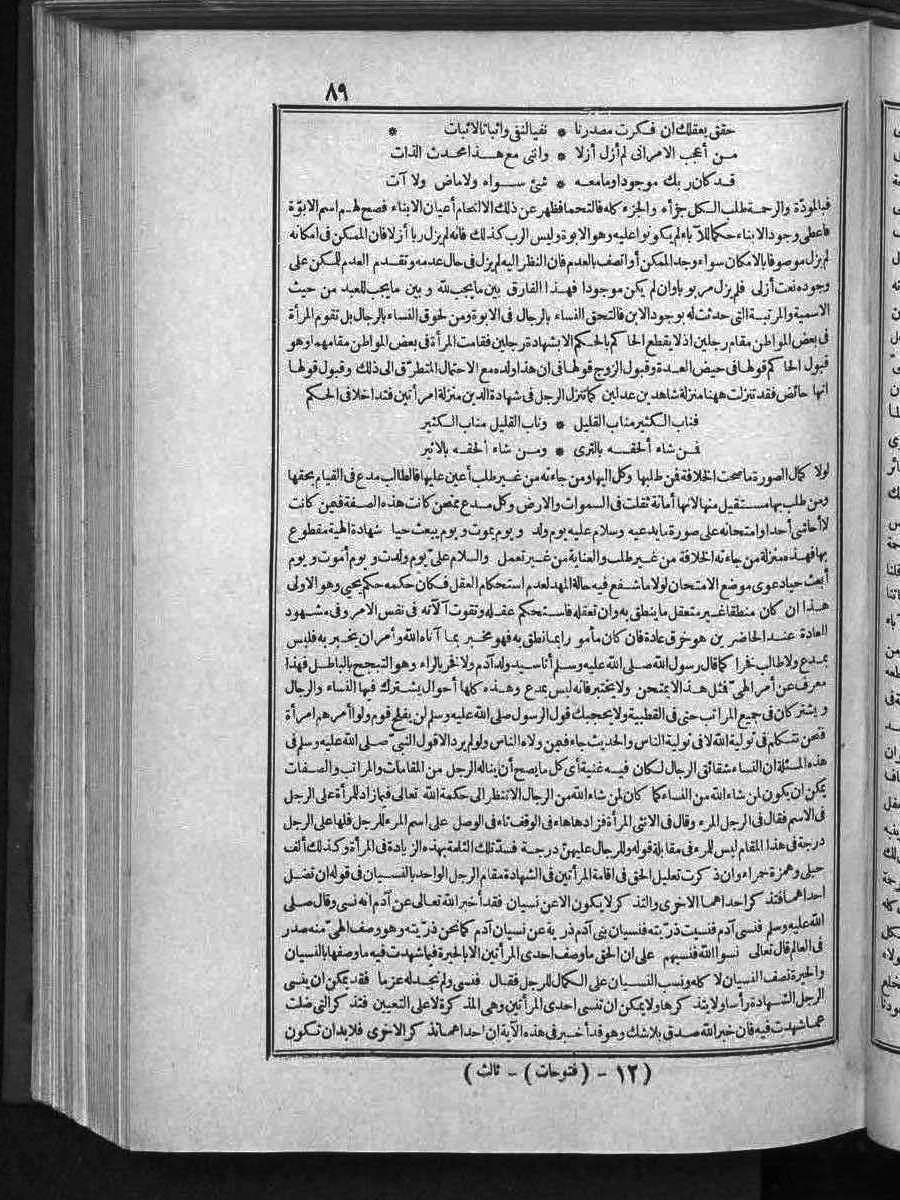 ٨٩
حقق بعقلك ان فكرت مصدرنا * نفى النفى واثبات الاثبات *
من أعجب الامر انى لم أزل أزلا * واننى مع هذا محدث الذات
قد كان ربك موجودا وما معه * شئ سواه ولا ماض ولا آت
فبالمودّة والرحمة طلب الكل جزأه والجزء كله فالتحما فظهر عن ذلك الالتحام أعيان الابناء فصح لهم اسم الابوّة
فاعطى وجود الابناء حكما للآباء لم يكونوا عليه وهو الابوة وليس الرب كذلك فانه لم يزل ربا أزلا فان الممكن فى امكانه
لم يزل موصوفا بالامكان سواء وجد الممكن أو اتصف بالعدم فان النظر اليه لم يزل فى حال عدمه وتقدم العدم للممكن على
وجوده نعت أزلى فلم يزل مربوبا وان لم يكن موجودا فهذا الفارق بين ما يجب لله و بين ما يجب للعبد من حيث
الاسمية والمرتبة التى حدثت له بوجود الابن فالتحق النساء بالرجال فى الابوة ومن لحوق النساء بالرجال بل تقوم المرأة
فى بعض المواطن مقام رجلين اذ لا يقطع الحاكم بالحكم الا بشهادة رجلين فقامت المرأة فى بعض المواطن مقامهما وهو
قبول الحاكم قولها فى حيض العدة وقبول الزوج قولها فى ان هذا ولده مع الاحتمال المتطرّق الى ذلك وقبول قولها
انها حائض فقد تنزلت ههنا منزلة شاهدين عدلين كما تنزل الرجل فى شهادة الدين منزلة امرأتين فتداخلا فى الحكم
فناب الكثير مناب القليل * وناب القليل مناب الكثير
فمن شاء ألحقه بالثرى * ومن شاء ألحقه بالاثير
لولا كمال الصورة ما صحت الخلافة فمن طلبها وكل اليها ومن جاءته من غير طلب أعين عليها فالطالب مدع فى القيام بحقها
ومن طلب بها مستقيل منها لانها أمانة ثقلت فى السموات والارض وكل مدع ممتحن كانت هذه الصفة فيمن كانت
لا أحاشى أحدا وامتحانه على صورة ما يدعيه وسلام عليه يوم ولد و يوم يموت و يوم يبعث حيا شهادة الهية مقطوع
بها فهذه منزلة من جاءته الخلافة من غير طلب والعناية من غير تعمل والسلام علىّ يوم ولدت و يوم أموت و يوم
أبعث حيا دعوى موضع الامتحان لولا ما شفع فيه حالة المهد لعدم استحكام العقل فكان حكمه حكم يحيى وهو الاولى
هذا ان كان منطقا غير متعقل ما ينطق به وان تعقله فاستحكم عقله وتقوت آلاته فى نفس الامر وفى مشهود
العادة عند الحاضرين هو خرق عادة فان كان مأمورا بما نطق به فهو مخبر بما آتاه الله وأمر ان يخبر به فليس
بمدع ولا طالب فخرا كما قال رسول الله صلى الله عليه وسلم أنا سيد ولد آدم ولا فخر بالراء وهو التبجح بالباطل فهذا
معرف عن أمر الهىّ فمثل هذا لا يمتحن ولا يختبر فانه ليس بمدع وهذه كلها أحوال يشترك فيها النساء والرجال
و يشتركان فى جميع المراتب حتى فى القطبية ولا يحجبك قول الرسول صلى الله عليه وسلم لن يفلح قوم ولوا أمرهم امرأة
فنحن نتكلم فى تولية الله لا فى تولية الناس والحديث جاء فيمن ولاه الناس ولو لم يرد الا قول النبىّ صلى الله عليه وسلم فى
هذه المسئلة ان النساء شقائق الرجال لكان فيه غنية أى كل ما يصح أن يناله الرجل من المقامات والمراتب والصفات
يمكن ان يكون لمن شاء الله من النساء كما كان لمن شاء الله من الرجال الا تنظر الى حكمة الله تعالى فيما زاد للمرأة على الرجل
فى الاسم فقال فى الرجل المرء وقال فى الانثى المرأة فزادها هاء فى الوقف تاء فى الوصل على اسم المرء للرجل فلها على الرجل
درجة فى هذا المقام ليس للمرء فى مقابلة قوله وللرجال عليهنّ درجة فسدّ تلك الثلمة بهذه الزيادة فى المرأة وكذلك ألف
حبلى وهمزة حمراء وان ذكرت تعليل الحق فى اقامة المرأتين فى الشهادة مقام الرجل الواحد بالنسيان فى قوله ان تضل
احداهما فتذكر احداهما الاخرى والتذكر لا يكون الا عن نسيان فقد أخبر الله تعالى عن آدم انه نسى وقال صلى
الله عليه وسلم فنسى آدم فنسيت ذرّيته فنسيان بنى آدم ذرية عن نسيان آدم كما نحن ذرّيته وهو وصف الهىّ منه صدر
فى العالم قال تعالى نسوا الله فنسيهم على ان الحق ما وصف احدى المرأتين الا بالحيرة فيما شهدت فيه ما وصفها بالنسيان
والحيرة نصف النسيان لا كله ونسب النسيان على الكمال للرجل فقال فنسى ولم نجد له عزما فقد يمكن ان ينسى
الرجل الشهادة رأسا ولا يتذكرها ولا يمكن ان تنسى احدى المرأتين وهى المذكرة لا على التعيين فتذكر التى ضلت
عما شهدت فيه فان خبر الله صدق بلا شك وهو قد أخبر فى هذه الآية ان احداهما تذكر الاخرى فلا بد ان تكون
(١٢ - (فتوحات) - ثالث)